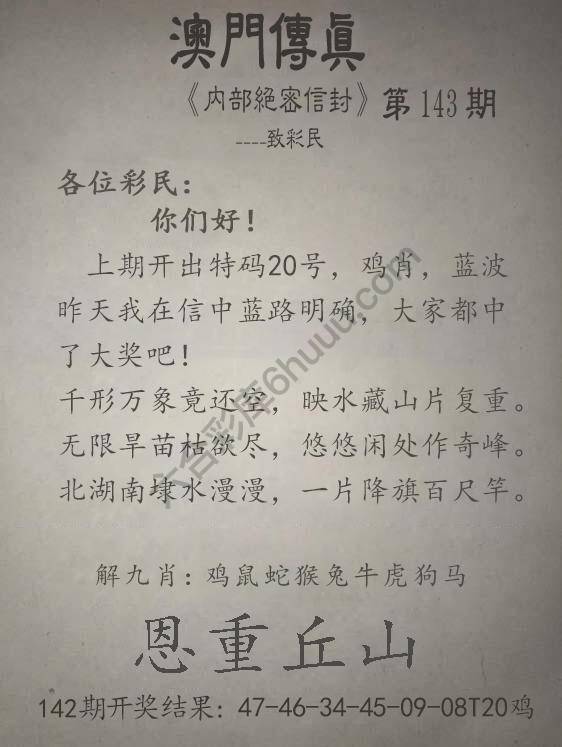 澳門傳眞
《内部絕密信封》第143期
----致彩民
各位彩民：
你们好！
上期开出特码20号，鸡肖，蓝波
昨天我在信中蓝路明确，大家都中
了大奖吧！
千形万象竟还空，映水藏山片复重。
无限旱苗枯欲尽，悠悠闲处作奇峰。
北湖南埭水漫漫，一片降旗百尺竿。
解九肖：鸡鼠蛇猴兔牛虎狗马
恩重丘山
142期开奖结果：47-46-34-45-09-08T20鸡
六合彩库6huuu.com